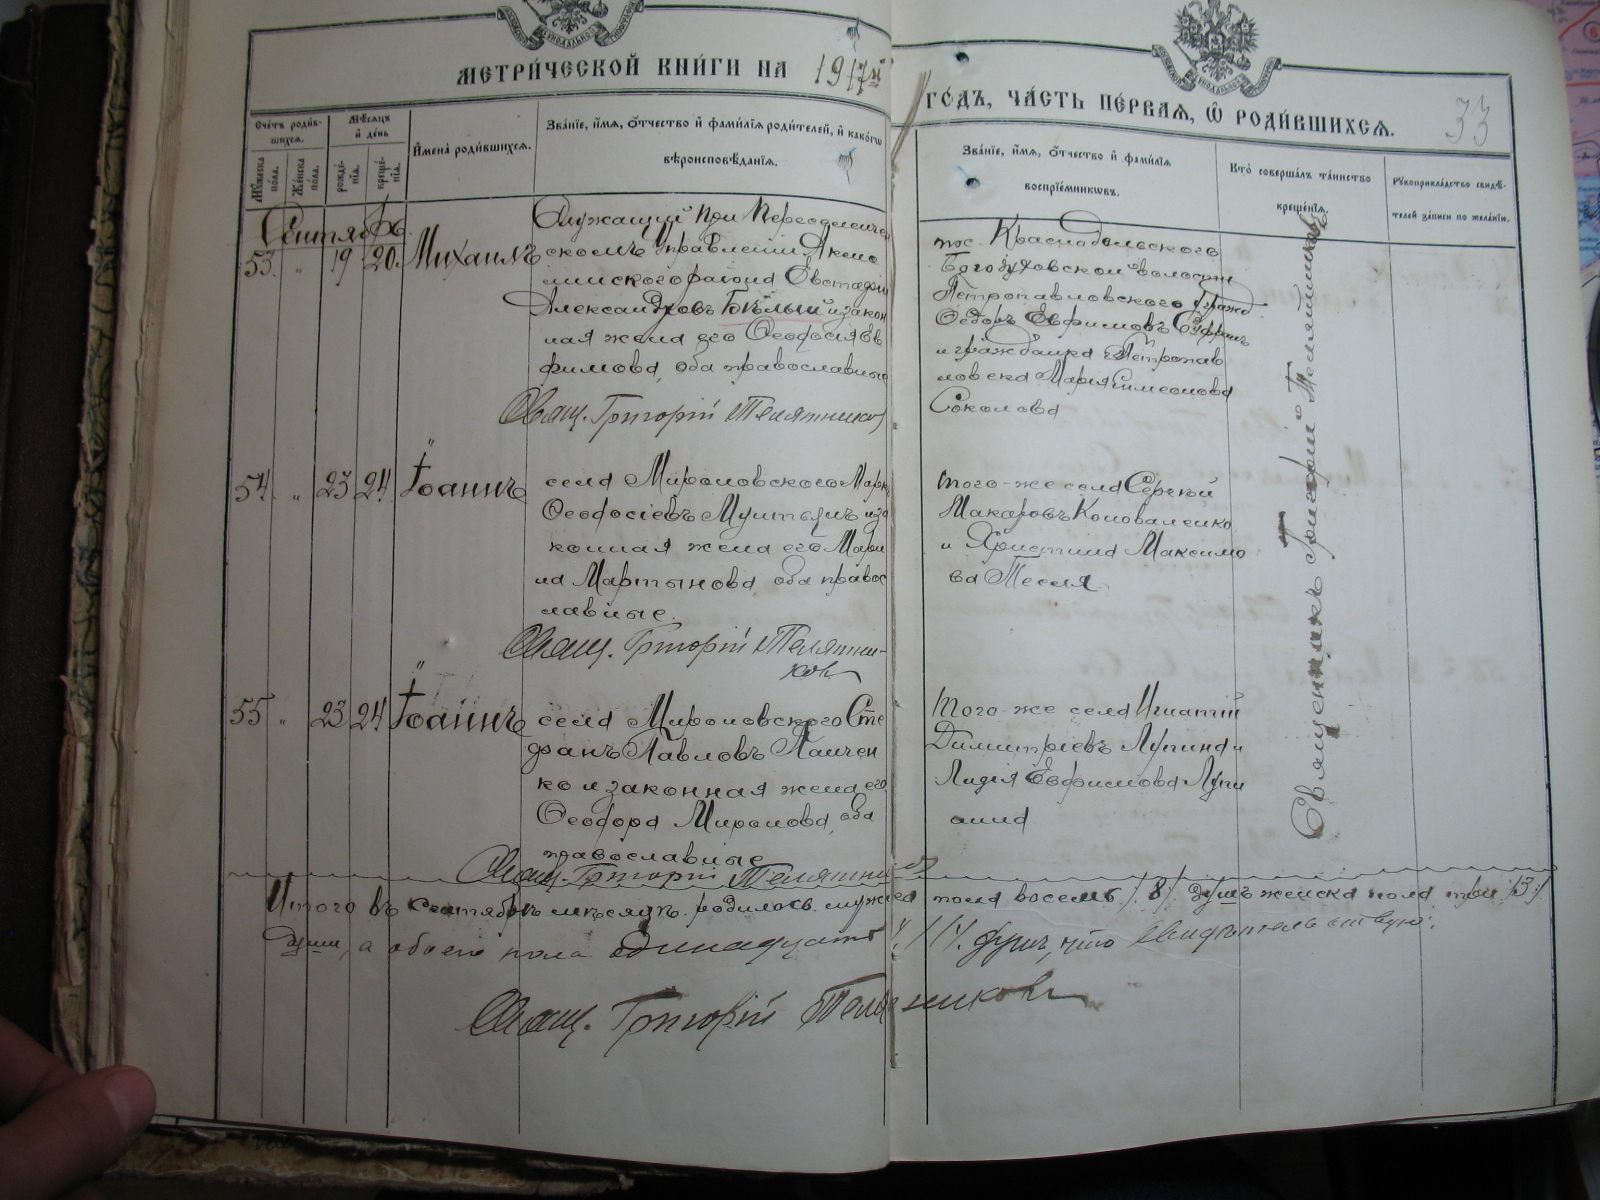 МЕТРИ́ЧЕСКОЙ КНИ́ГИ НА 1917й
ГО́ДЪ, ЧА́СТЬ ПЕ́РВАЯ, Ѡ҆ РОДИ́ВШИХСЯ.
33
Сче́тъ роди́в-
шихся.
Мѣ́сяцъ
и҆ де́нь
И҆мена̀ роди́вшихся.
Зва́нїе, и҆́мя, о҆́тчество и҆ фами́лїя роди́телей, и҆ како́гѡ
вѣроисповѣ́данїя.
Зва́нїе, и҆́мя, о҆́тчество и҆ фами́лїя
воспрїе́мникѡвъ.
Кто̀ соверша́лъ та́инство
креще́нїя.
Рꙋкоприкла́дство свидѣ́-
телей за́писи по жела́нїю.
Мꙋ́жеска
по́ла.
Же́нска
по́ла.
рожде́-
нїя.
креще́-
нїя.
Сентябрь
53. " 19 20. Михаилъ
Служащий при Переселенче
скомъ Управленіи Акмо
линского района Евстафій
Александровъ Бѣлый и закон
ная жена его Ѳеодосія Ев
фимова, оба православные
Свящ. Григорій Телятников
пос. Краснодольского
Богодуховской волости
Петропавловского гражд
Ѳедоръ Евфимовъ
и гражданка Петропав
ловска Марія Симеонова
Соколова
54. " 23 24 Іоаннъ
села Мироновского Марк
Ѳеодосіевъ и за
конная жена его Мари
на Мартынова, оба правос
лавные.
Свящ. Григорій Телятни-
ковъ
того-же села Сергѣй
Макаровъ Коноваленко
и Христина Максимо
ва Тесля.
55 " 23 24 Іоаннъ
села Мироновского Сте
фанъ Павловъ Панчен
ко и законная жена его
Ѳеодора Миронова, оба
православные
Свящ. Григорій Телятников
того-же села Игнатій
Димитріевъ Лупина и
Лидія Евфимова Лупи
нина
Священникъ Григорій Телятниковъ
Итого въ Сентябрѣ мѣсяцѣ родилось мужска пола восемь /8/ душъ женска пола три /3/
души, а обоего пола одинадцать /11/ душъ, что свидѣтельствую:
Свящ. Григорій Телятниковъ